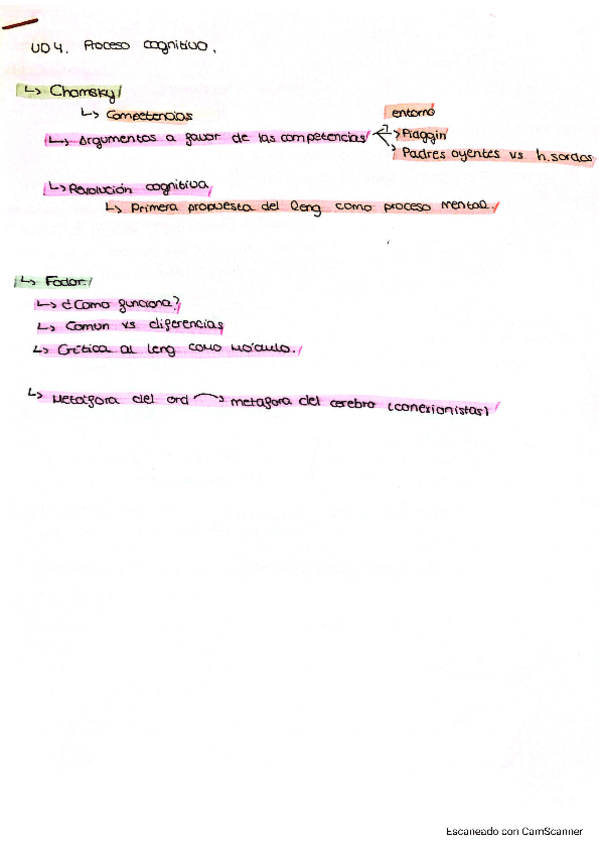 UD4. Proceso cognitivo.
↳ Chomsky/
↳ Competencias
entorno
↳ Argumentos a favor de las competencias/
→ Pidggin/
Padres oyentes vs h. sordos
↳ Revolución cognitiva,
↳ Primera propuesta del leng como proceso mental./
↳ Fodor:/
↳ ¿Como funciona?/
↳ Comun vs diferencias
↳ Crítica al leng como módulo./
↳ Metáfora del ord → metafora del cerebro (conexionistas)/
Escaneado con CamScanner